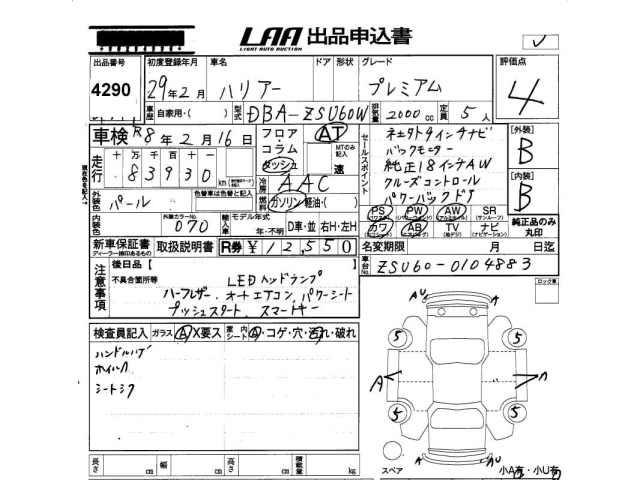 LAA 出品申込書
LIGHT AUTO AUCTION
出品番号 初度登録年月 車名 ドア 形状 グレード 評価点
4290 29年2月 ハリアー プレミアム 4
車歴 自家用・( ) 型式 DBA-ZSU60W 排気量 2000cc 定員 5人
車検 R8年2月16日 フロア AT
コラム MTのみ記入
ダッシュ 速
走行 十万 千 百 十
83930 km
冷房 AAC
外装色 パール 色替車は色替と記入
燃料 ガソリン・軽油・( )
セールスポイント
ネェクト9インチナビ
バックモニター
純正18インチAW
クルーズコントロール
パワーバックドア
[外装]
B
[内装]
B
PS PW AW SR
カワ AB TV ナビ
純正品のみ丸印
内装色 外装カラーNo. 070 輸入車 モデル年式 年・不明 D車・並 右H・左H
新車保証書 取扱説明書 R券 ¥12,550 名変期限 月 日迄
ディーラー捺印あるもの
注意事項
後日品【 】
車台No. ZSU60-0104883
不具合箇所等 LEDヘッドランプ
ハーフレザー、オートエアコン、パワーシート
プッシュスタート、スマートキー
ロック車
検査員記入 ガラス A X要ス 室内 A・コゲ・穴・汚れ・破れ
ハンドルハゲ
ホイルA
シートシワ
AU A
5 5
A A
5 5
A AU
長さ cm 幅 cm 高さ cm 積載量 kg
スペア 小A有・小U有